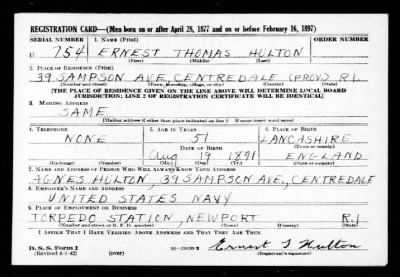 REGISTRATION CARD—(Men born on or after April 28, 1877 and on or before February 16, 1897)
SERIAL NUMBER 1. NAME (Print) ORDER NUMBER
U 754 ERNEST THOMAS HULTON
(First) (Middle) (Last)
2. PLACE OF RESIDENCE (Print)
39 SAMPSON AVE, CENTREDALE (PROV) R.I.
(Number and street) (Town, township, village, or city) (County) (State)
[THE PLACE OF RESIDENCE GIVEN ON THE LINE ABOVE WILL DETERMINE LOCAL BOARD
JURISDICTION; LINE 2 OF REGISTRATION CERTIFICATE WILL BE IDENTICAL]
3. MAILING ADDRESS
SAME
[Mailing address if other than place indicated on line 2. If same insert word same]
4. TELEPHONE 5. AGE IN YEARS 6. PLACE OF BIRTH
NONE 51 LANCASHIRE
DATE OF BIRTH (Town or county)
Aug 19 1891 ENGLAND
(Exchange) (Number) (Mo.) (Day) (Yr.) (State or country)
7. NAME AND ADDRESS OF PERSON WHO WILL ALWAYS KNOW YOUR ADDRESS
AGNES HULTON, 39 SAMPSON AVE., CENTREDALE
8. EMPLOYER'S NAME AND ADDRESS
UNITED STATES NAVY
9. PLACE OF EMPLOYMENT OR BUSINESS
TORPEDO STATION, NEWPORT R.I.
(Number and street or R. F. D. number) (Town) (County) (State)
I AFFIRM THAT I HAVE VERIFIED ABOVE ANSWERS AND THAT THEY ARE TRUE.
D. S. S. Form 1 Ernest T Hulton
(Revised 4-1-42) (over) (Registrant's signature)